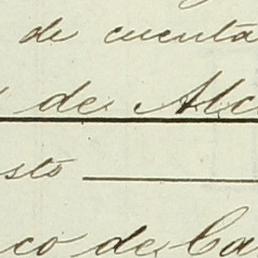 de cuenta
de Alc
sto
co de Ca